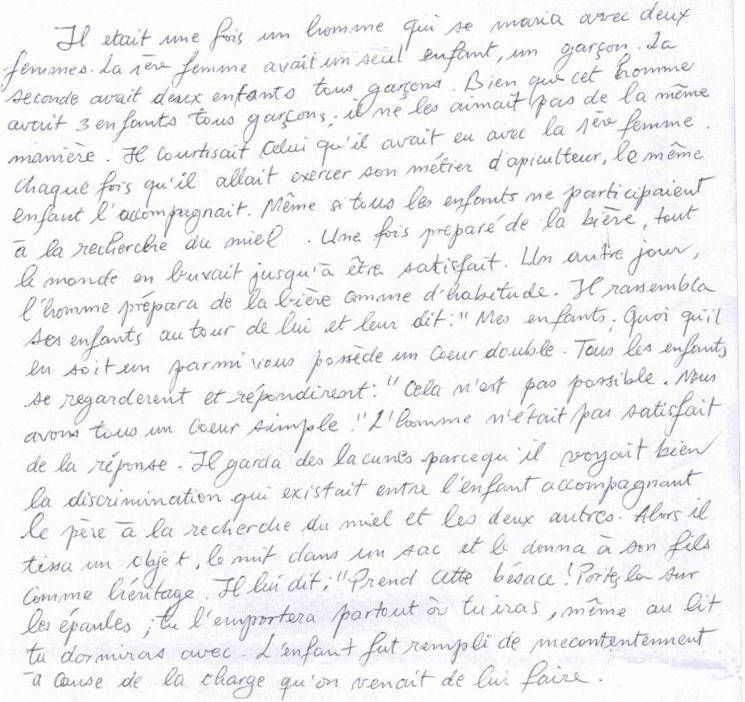 Il etait une fois un homme qui se maria avec deux
femmes. La 1ère femme avait un seul enfant, un garçon. La
seconde avait deux enfants tous garçons. Bien que cet homme
avait 3 enfants tous garçons; il ne les aimait pas de la même
manière. Il courtisait celui qu'il avait eu avec la 1ère femme.
Chaque fois qu'il allait exercer son métier d'apiculteur, le même
enfant l'accompagnait. Même si tous les enfants ne participaient
à la recherche du miel. Une fois préparé de la bière, tout
le monde en buvait jusqu'à être satisfait. Un autre jour,
l'homme prépara de la bière comme d'habitude. Il rassembla
ses enfants autour de lui et leur dit: "Mes enfants; Quoi qu'il
en soit un parmi vous possède un coeur double. Tous les enfants
se regarderent et répondirent: "Cela n'est pas possible. Nous
avons tous un coeur simple!" L'homme n'était pas satisfait
de la réponse. Il garda des lacunes parcequ'il voyait bien
la discrimination qui existait entre l'enfant accompagnant
le père à la recherche du miel et les deux autres. Alors il
tissa un objet, le mit dans un sac et le donna à son fils
comme héritage. Il lui dit; "Prend cette bésace! Portez la sur
les épaules; tu l'emportera partout où tu iras, même au lit
tu dormiras avec. L'enfant fut rempli de mecontentement
à cause de la charge qu'on venait de lui faire.